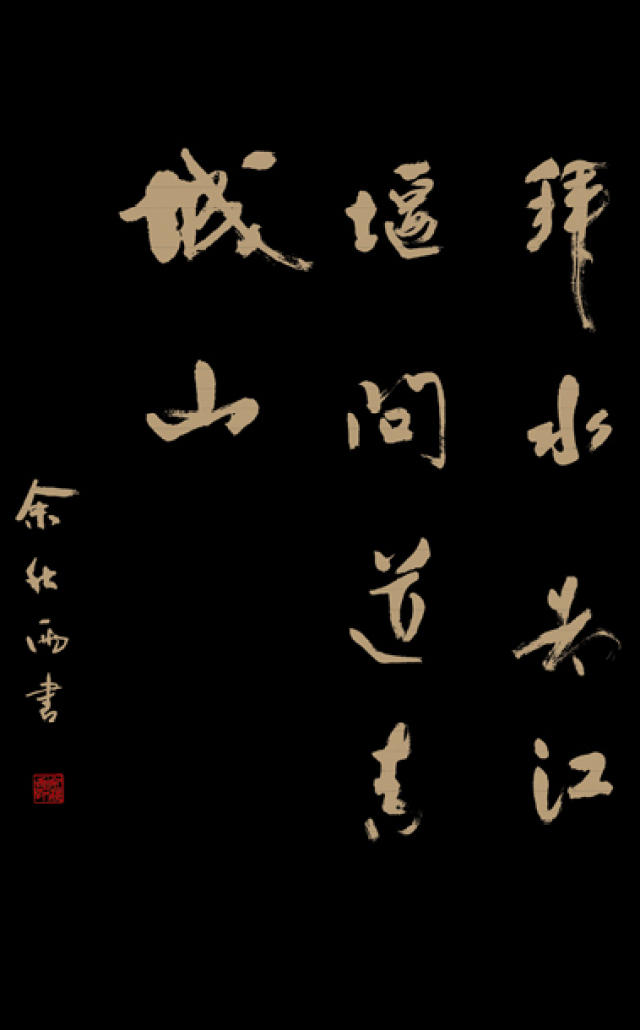 拜水都江
堰问道青
城山
余秋雨書